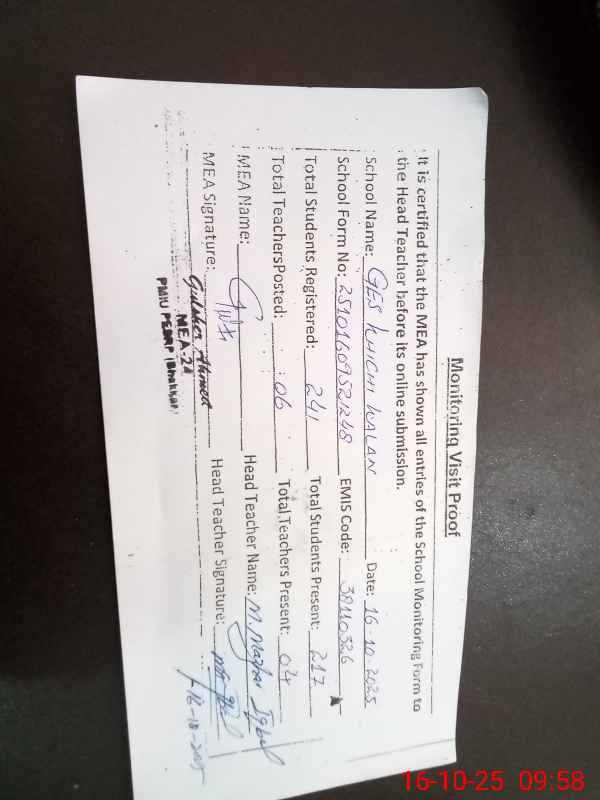 Monitoring Visit Proof
It is certified that the MEA has shown all entries of the School Monitoring Form to
the Head Teacher before its online submission.
School Name: GES KHICHI KALAN Date: 16-10-2025
School Form No: 25101609521248 EMIS Code: 38110326
Total Students Registered: 241 Total Students Present: 217
Total TeachersPosted: 06 Total Teachers Present: 04
MEA Name: Head Teacher Name: M. Mazhar Iqbal
MEA Signature: Head Teacher Signature:
Gulsher Ahmed
MEA-24
PMIU PESRP (Bhakkar)
16-10-2025
16-10-25 09:58